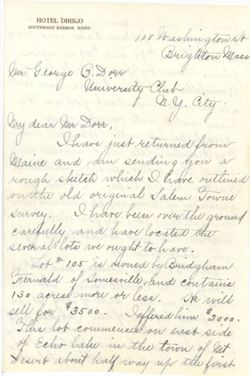 HOTEL DIRIGO
SOUTHWEST HARBOR, MAINE
108 Washington St
Brighton Mass
Mr George B. Dorr
University Club
N.Y. City.
My dear Mr Dorr,
I have just returned from
Maine and am sending you a
rough sketch which I have outlined
on the old original Salem Towne
survey. I have been over the ground
carefully and have located the
several lots we ought to have.
Lot # 105 is owned by Bridgham
Fernald of Somesville, and contains
130 acres more or less. He will
sell for $3500. I offered him $3000.
This lot commences on east side
of Echo Lake in the town of Mt
Desert about half way up the first